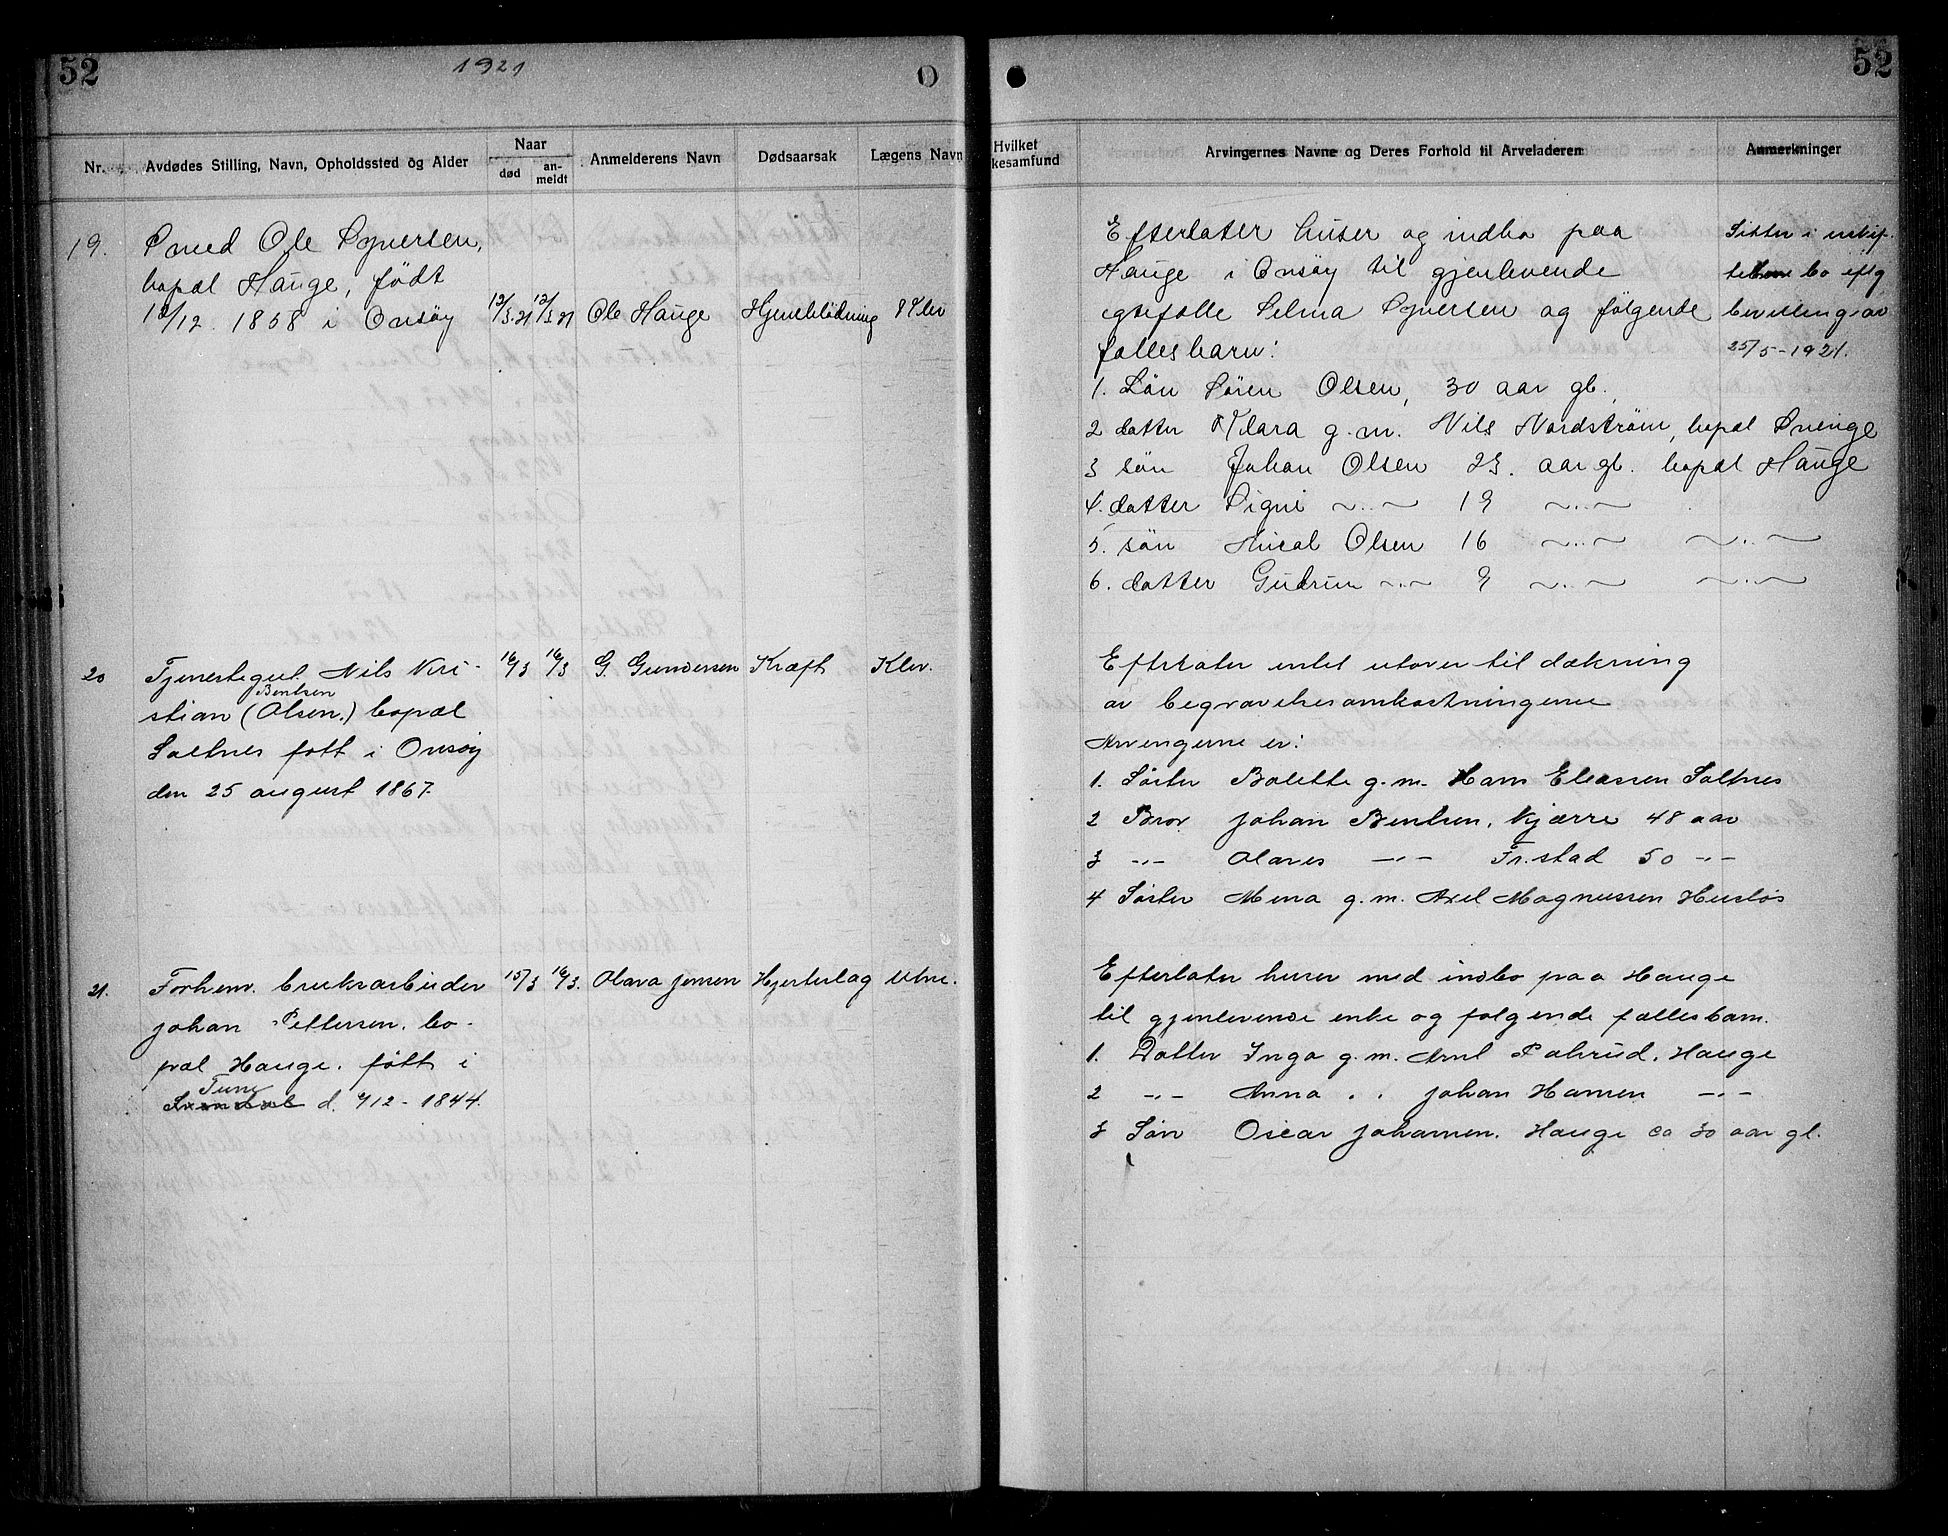 52
1921
52
Nr.
Avdødes Stilling, Navn, Opholdssted og Alder
Naar
død
an-
meldt
Anmelderens Navn
Dødsaarsak
Lægens Navn
Hvilket
kesamfund
Arvingernes Navne og Deres Forhold til Arveladeren
Anmerkninger
19.
Smed Ole Syversen,
bopæl Hauge, født
/12 1858 i Onsøy
12/3.21
12/3 21
Ole Hauge
Hjerneblödning
Klev
Efterlater huser og indbo paa
Hauge i Onsøy til gjenlevende
egtefælle Selma Syversen og følgende
fællesbarn:
1. Sön Sören Olsen, 30 aar gl.,
2 datter Klara g.m. Nils Nordström, bopæl Sninge
3 sön Johan Olsen 23. aar gl. bopæl Hauge
4. datter Signe ~..~ 19 ~..~
5. sön Olsen 16 ~..~ ~..~
6. datter Gudrun ~..~ 9 ~..~ ~..~
Sitter i uskif-
te bo eftg
bevilling av
25/5-1921.
20
Tjenestegut Nils Kri-
Bentsen
stian (Olsen.) bopæl
Saltnes født i Onsöy
den 25 august 1867.
16/3
16/3
G. Gundersen
Kræft
Klev.
Efterlater intet utover til dækning
av begravelsesomkostningerne
Arvingerne er:
1. Söster Bolette g.m. Hans Eliassen Saltnes
2 Bror Johan Bentsen, Kjærre 48 aar
3 -"- Olaves -"- Fr.stad 50 -"-
4 Söster Mina g.m. Axel Magnussen Huslös
21.
Forhenv. bruksarbeider
Johan Pettersen, bo-
pæl Hauge. født i
Tune
d. 9/12-1844.
15/3
16/3.
Olava Jensen
Hjerteslag
Utne.
Efterlater huser med indbo paa Hauge
til gjenlevende enke og følgende fællesbarn.
1. Datter Inga g.m. Arnt Hauge
2 -"- Anna " " Johan Hansen -"-
3 Sön Oscar Johansen. Hauge ca 30 aar gl.